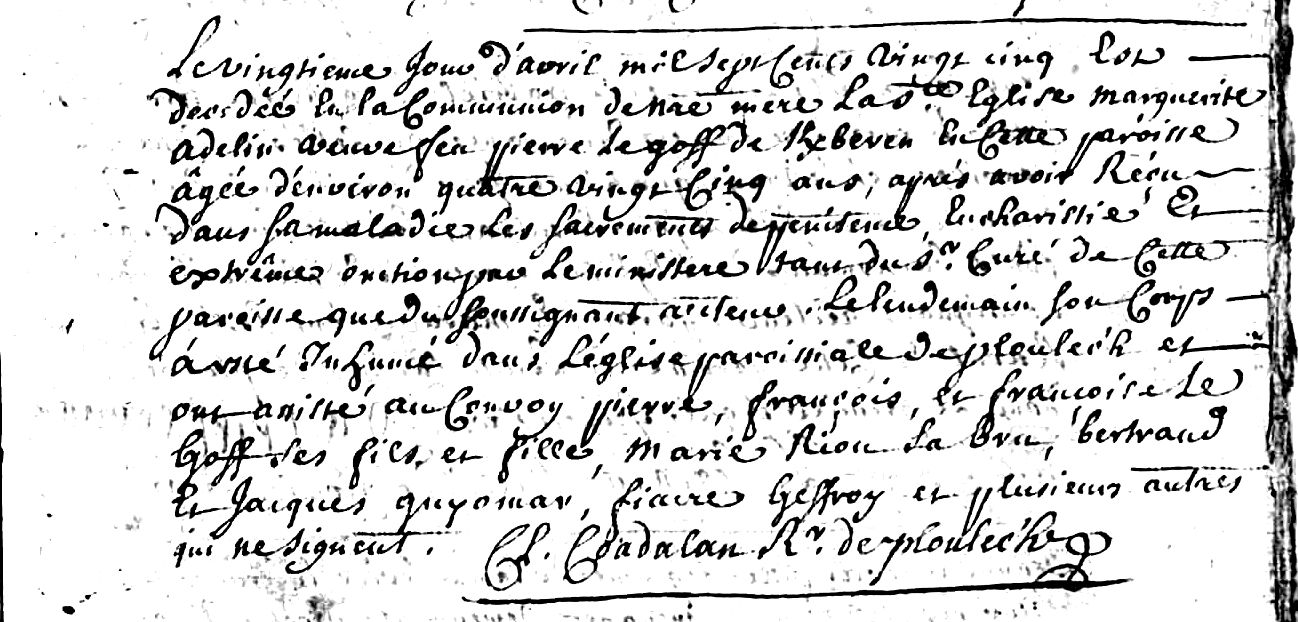 Le vingtieme Jour d'avril mil sept Cents vingt cinq Est
decedée En la Communion de nre mere La Ste Eglise Marguerite
adelin veuve feu pierre Le goff de Kerberen En Cette paroisse
âgée d'environ quatre vingt Cinq ans, aprés avoir Réçu
dans sa maladie Les sacrements de penitence, Eucharistie Et
extrême onction par Le ministere tant du Sr. Curé de Cette
paroisse que du soussignant recteur. Le lendemain son Corps
á esté Inhumé dans L'église paroissialle de ploulech et
ont assisté au Convoy pierre, françois, et francoise Le
Goff ses fils et fille, Marie Riou sa bru, bertrand
Et Jacques guyomar, fiacre Geffroy et plusieurs autres
qui ne signent. C. Coadalan Rr. de ploulech